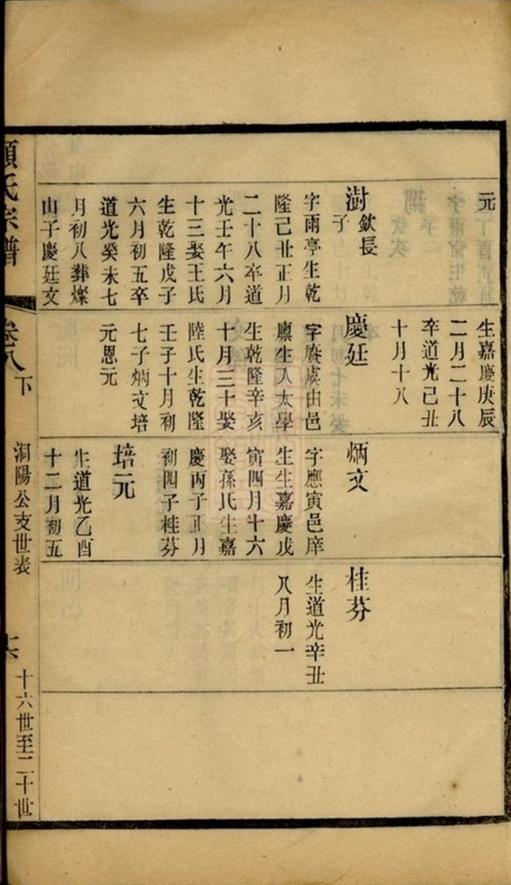 元
生嘉慶庚辰
二月二十八
卒道光己丑
十月十八
澍
欽長
子
字雨亭生乾
隆己丑正月
二十八卒道
光壬午六月
十三娶王氏
生乾隆戊子
六月初五卒
道光癸未七
月初八葬燦
山子慶廷文
慶廷
字賡虞由邑
廩生入太學
生乾隆辛亥
十月三十娶
陸氏生乾隆
壬子十月初
七子炳文培
元恩元
炳文
字應寅邑庠
生生嘉慶戊
寅四月十六
娶孫氏生嘉
慶丙子正月
初四子桂芬
培元
生道光乙酉
十二月初五
桂芬
生道光辛丑
八月初一
顧氏宗譜
卷八
下
洞陽公支世表
十六世至二十世